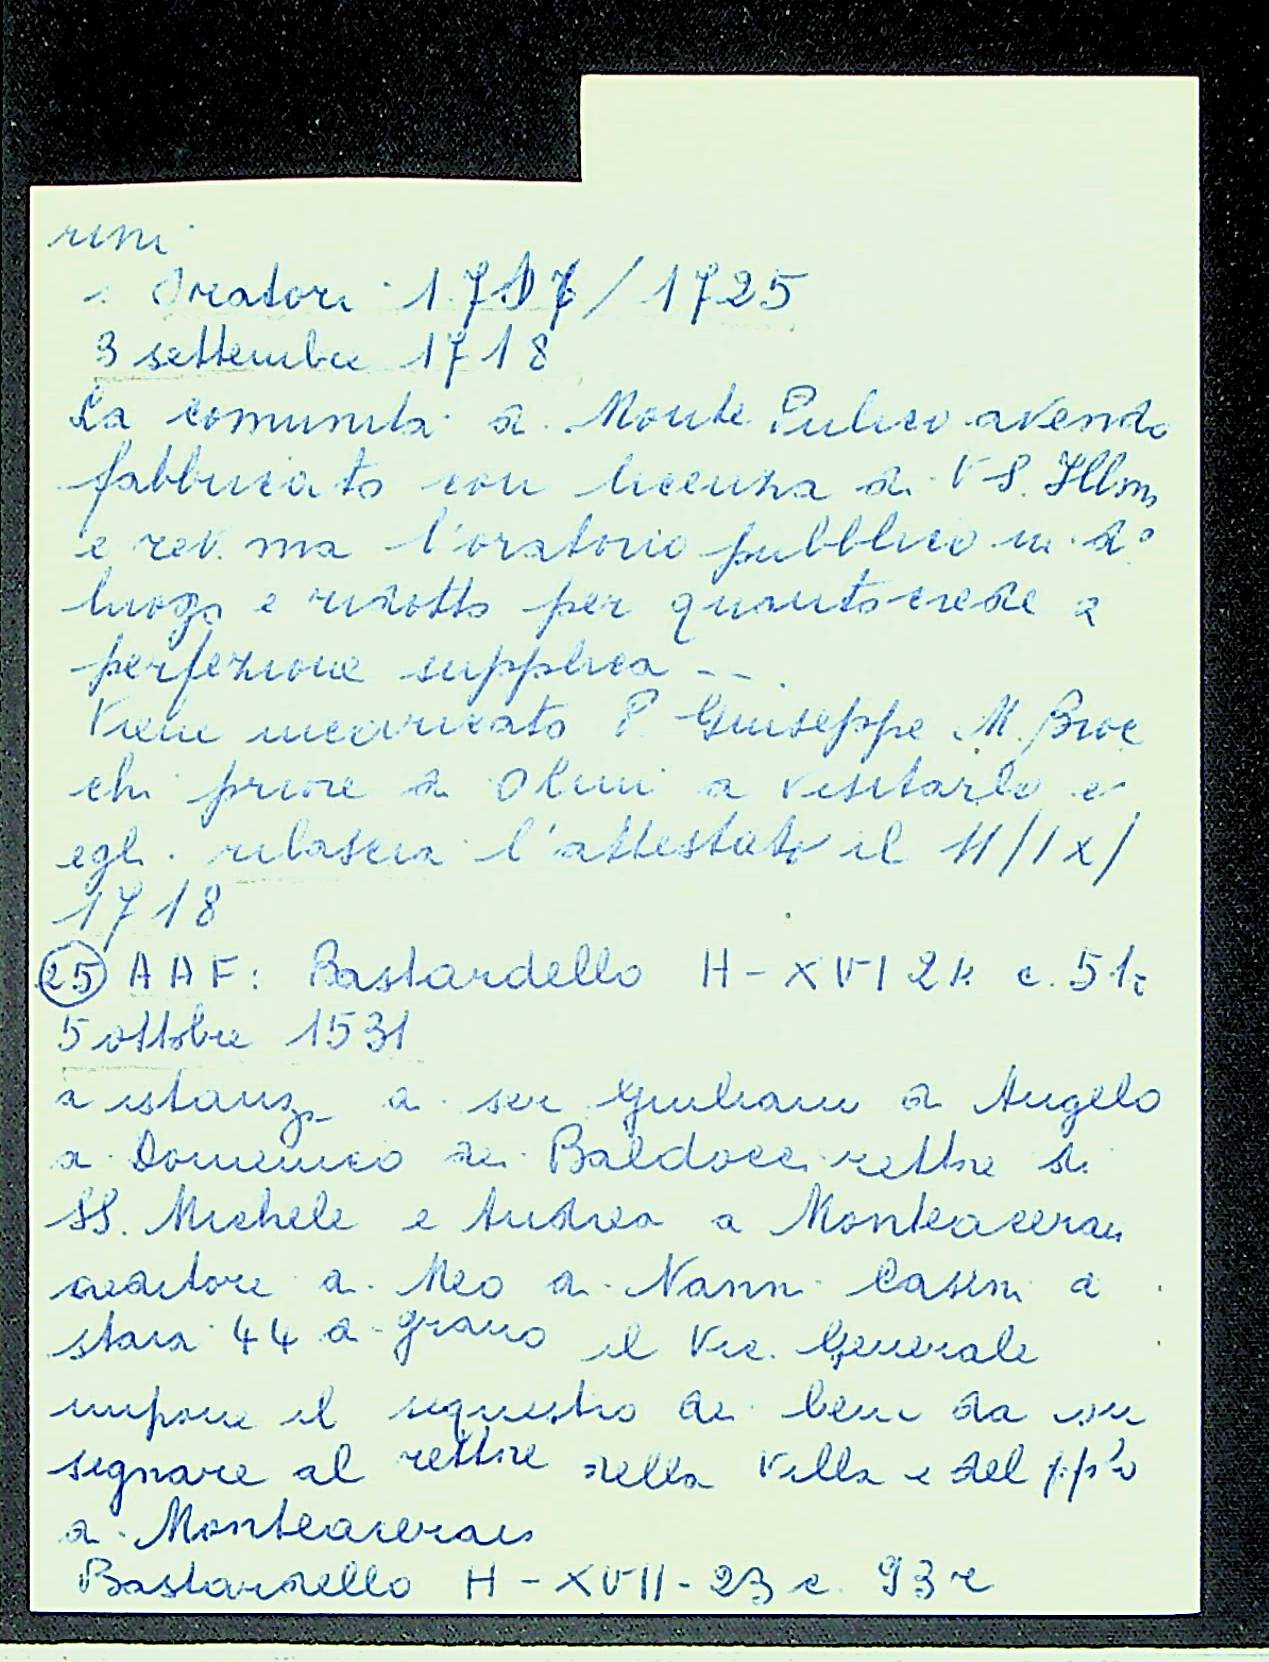 rini
: Oratori 1717/1725
3 settembre 1718
La comunità di Monte Pulico avendo
fabbricato con licenza di V S. Ill.ma
e rev.ma l'oratorio pubblico in d°
luogo e ridotto per quanto crede a
perfezione supplica --.
Viene incaricato P. Giuseppe M. Broc
chi priore di Olmi a visitarlo e
egli rilascia l'attestato il 11/IX/
1718
(25) AAF: Bastardello H-XVI c. 51r
5 ottobre 1531
a istanza di ser Giuliano di Angelo
di Domenico dei Baldocci rettore di
SS. Michele e Andrea a Monteacerai
creditore di Meo di Nanni Casini di
staia 44 di grano il Vic. Generale
impone il sequestro dei beni da con
segnare al rettore nella villa e del pp'o
di Monteacerai
Bastardello H-XVII-23 c. 93r